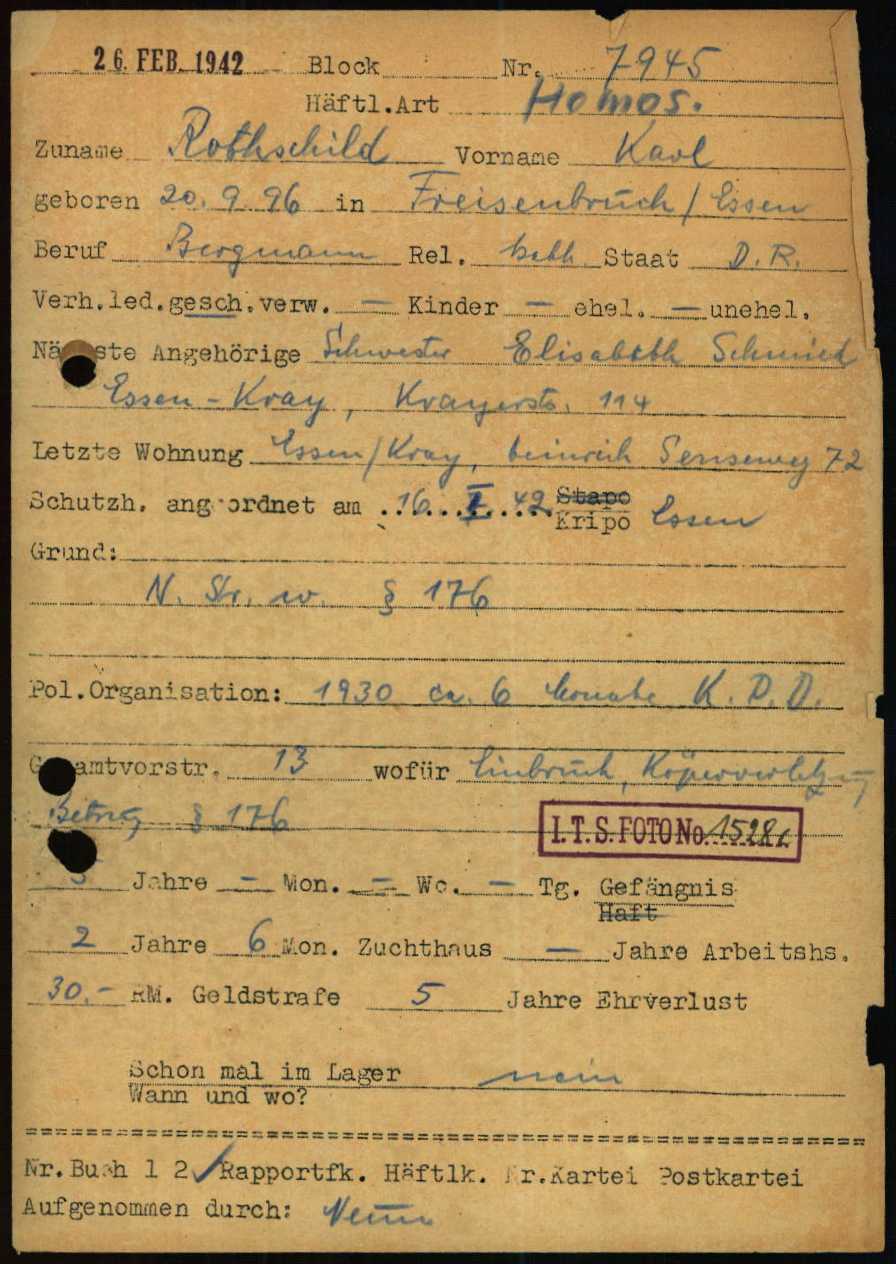 26. FEB. 1942 Block Nr. 7945
Häftl.Art Homos.
Zuname Rothschild Vorname Karl
geboren 20. 9. 96 in Freisenbruch / Essen
Beruf Bergmann Rel. kath. Staat D. R.
Verh.led.gesch.verw. — Kinder — ehel. — unehel.
Nächste Angehörige Schwester Elisabeth Schmied
Essen - Kray, Krayerstr. 114
Letzte Wohnung Essen/Kray, heinrich Senseweg 72
Schutzh. angeordnet am 16. I. 42 Stapo
Kripo Essen
Grund:
N. Str. w. § 176
Pol.Organisation: 1930 ca. 6 Monate K. P. D.
Gesamtvorstr. 13 wofür Einbruch, Köperverletzung
Betrug § 176
I.T.S. FOTO No.
5 Jahre — Mon. — Wo. — Tg. Gefängnis
Haft
2 Jahre 6 Mon. Zuchthaus — Jahre Arbeitshs.
30.- RM. Geldstrafe 5 Jahre Ehrverlust
Schon mal im Lager nein
Wann und wo?
Nr.Buch 1 2 ✓ Rapportfk. Häftlk. Nr.Kartei Postkartei
Aufgenommen durch: